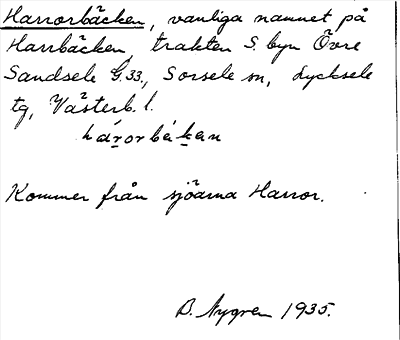 Harrorbäcken, vanliga namnet på
Harrbäcken, trakten S. byn Övre
Sandsele G.33, Sorsele sn, Lycksele
tg, Västerb. l.
hárorbákan
Kommer från sjöarna Harror.
B. Nygren 1935.